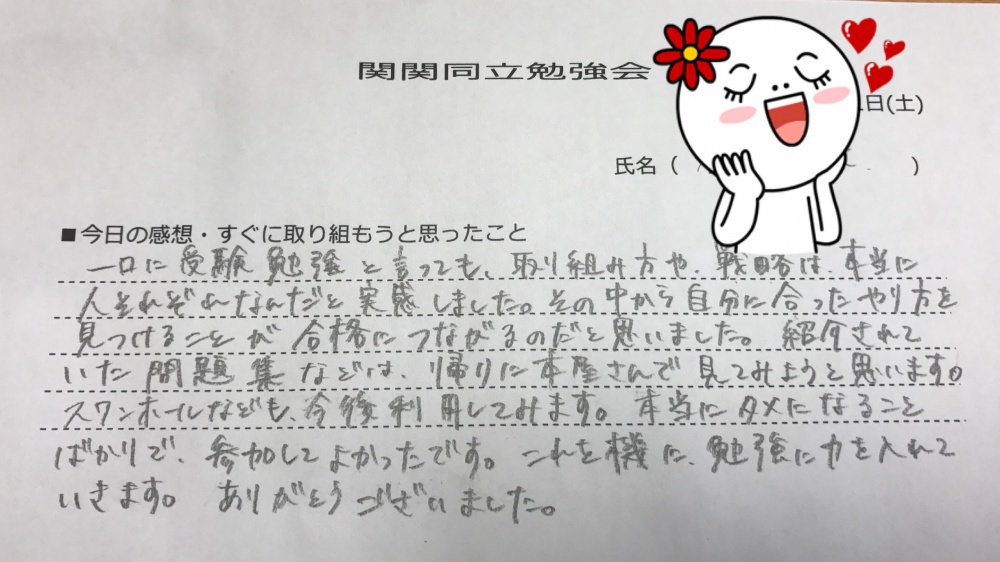 関関同立勉強会
日(土)
氏名（ ）
■今日の感想・すぐに取り組もうと思ったこと
一口に受験勉強と言っても、取り組み方や、戦略は、本当に
人それぞれなんだと実感しました。その中から自分に合ったやり方を
見つけることが合格につながるのだと思いました。紹介されて
いた問題集などは、帰りに本屋さんで見てみようと思います。
スワンホールなども、今後利用してみます。本当にタメになること
ばかりで、参加してよかったです。これを機に、勉強に力を入れて
いきます。ありがとうございました。